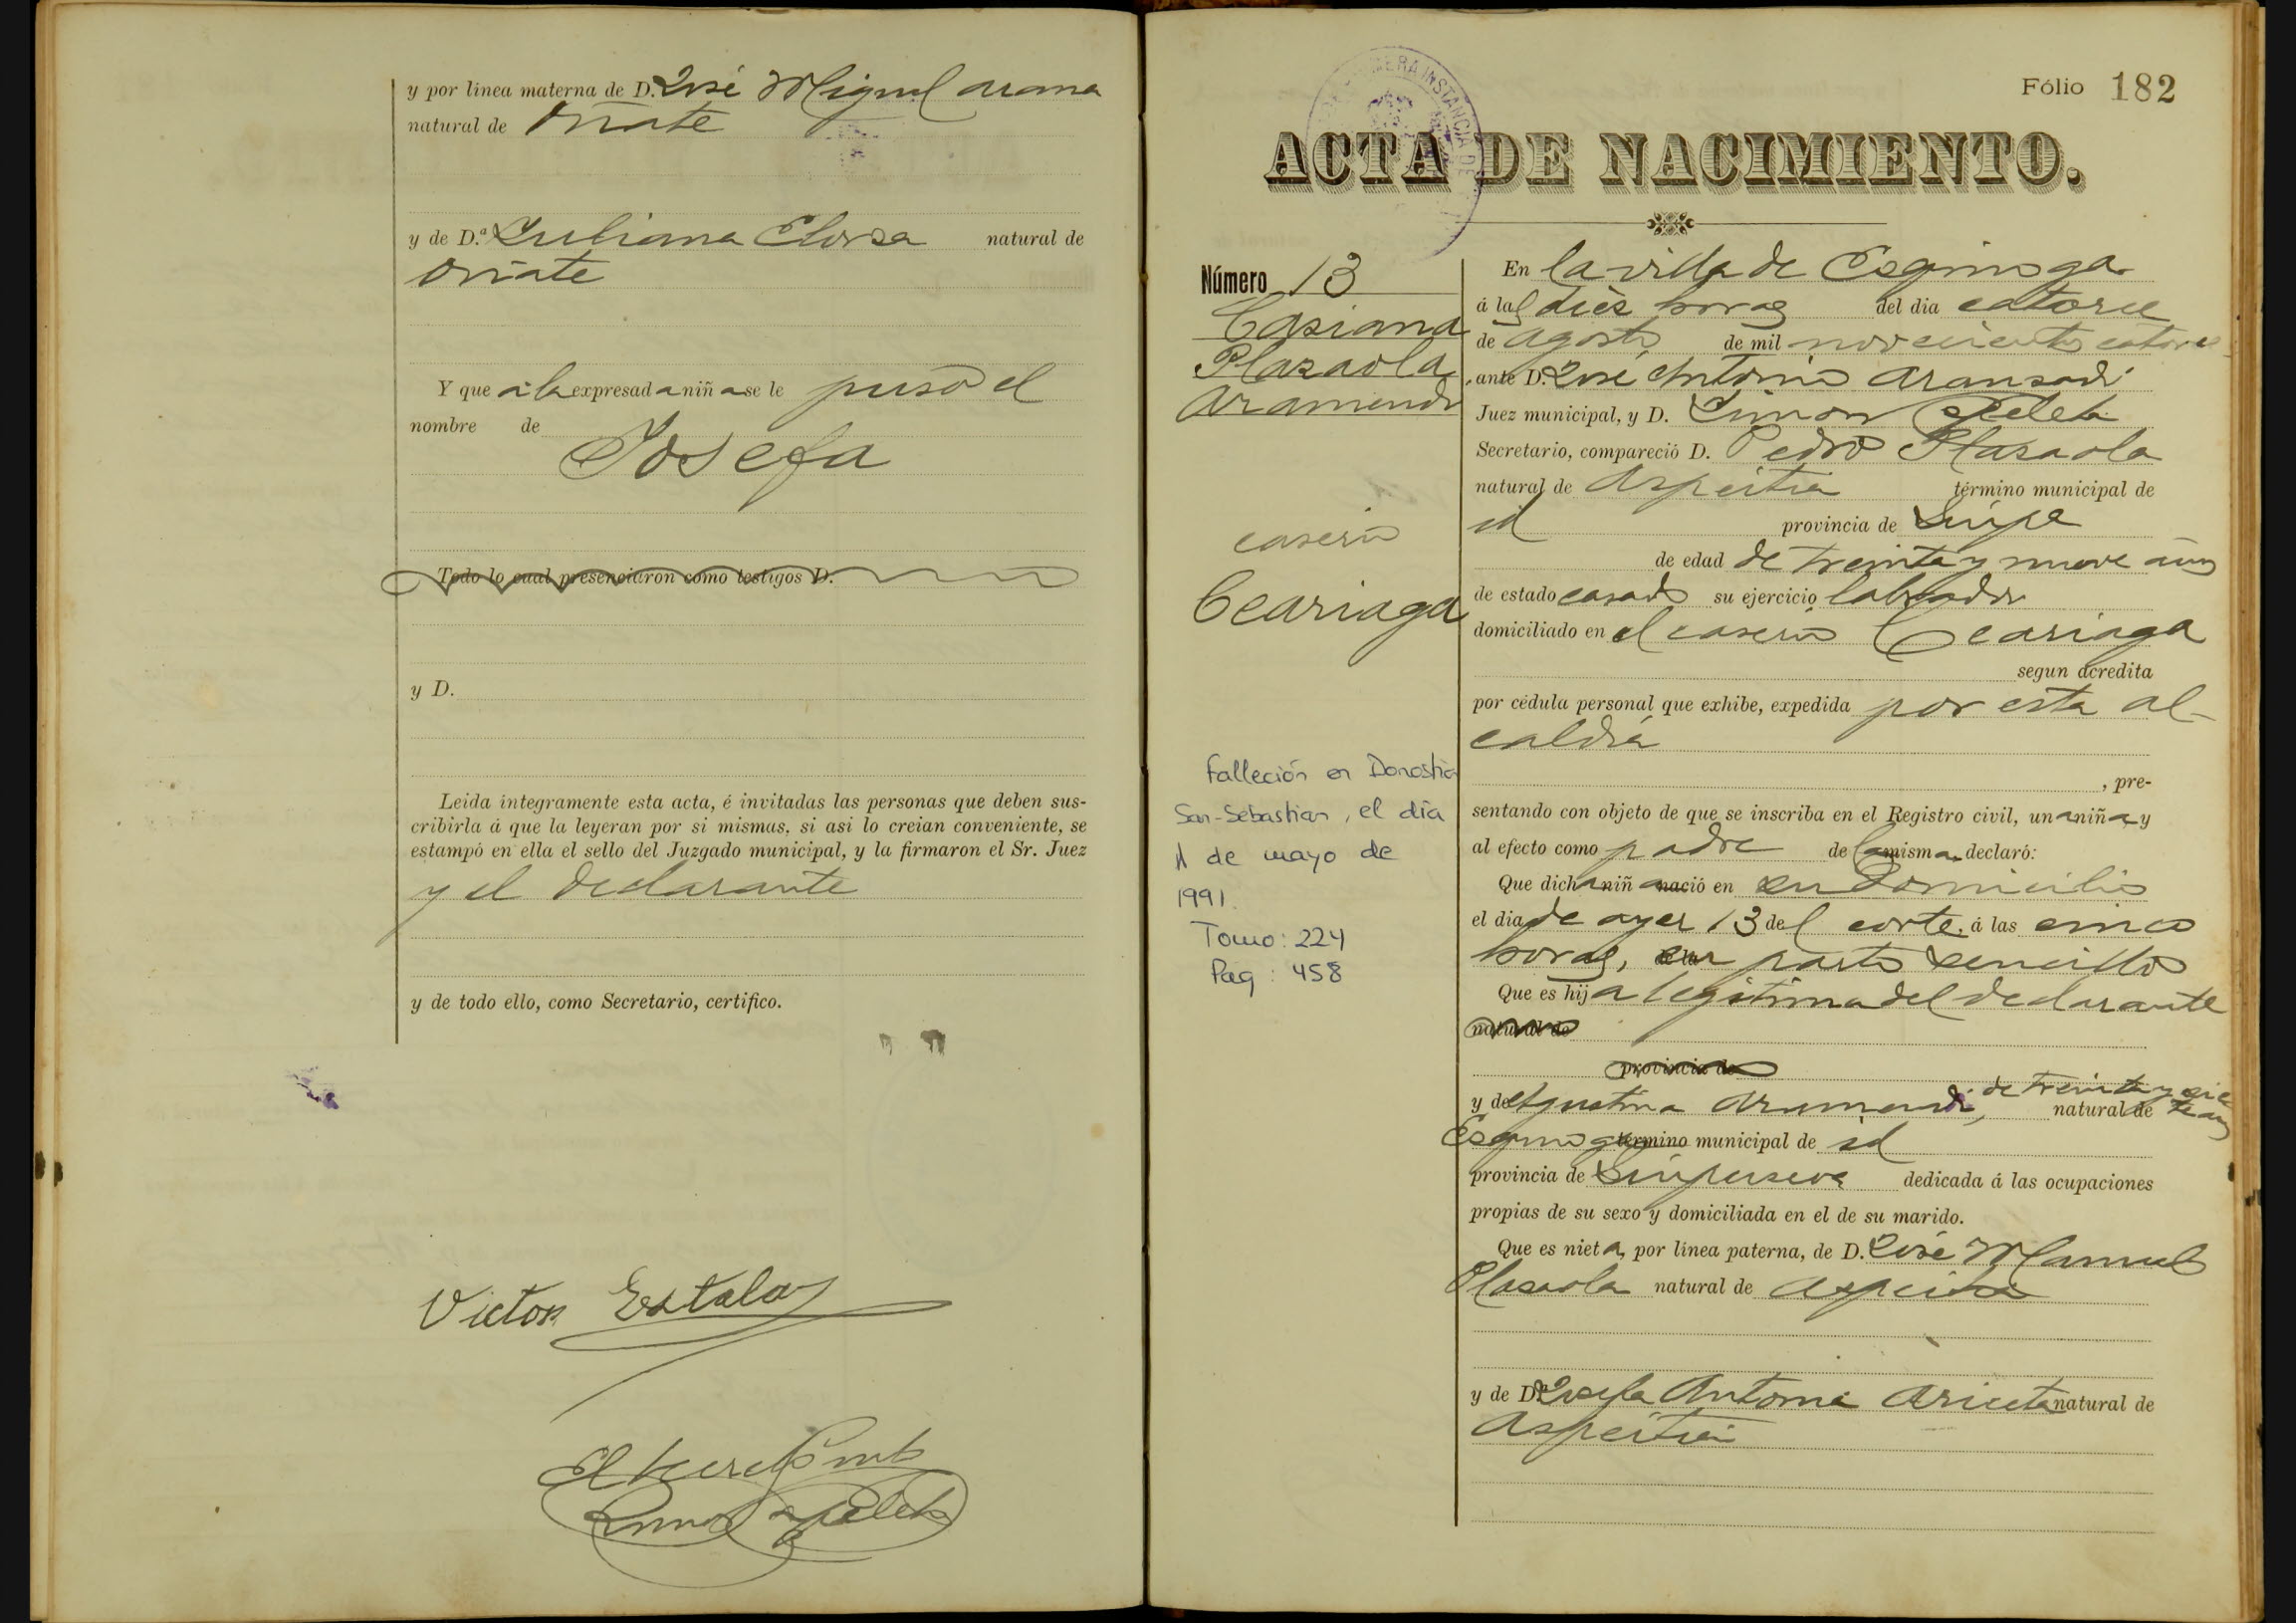 y por línea materna de D. José Miguel Arana
natural de Oñate
y de D.ª Juliana Elorza natural de
Oñate
Y que a la expresada niña se le puso el
nombre de
Josefa
Todo lo cual presenciaron como testigos D.
y D.
Leida íntegramente esta acta, é invitadas las personas que deben sus-
cribirla á que la leyeran por si mismas, si asi lo creian conveniente, se
estampó en ella el sello del Juzgado municipal, y la firmaron el Sr. Juez
y el declarante
y de todo ello, como Secretario, certifico.
Victor
Fólio 182
ACTA DE NACIMIENTO.
Número 13
Casiana
Plazaola
Aramendi
caserío
Ceariaga
Falleción en Donostia
San-Sebastian, el día
de mayo de
1991.
Tomo: 224
Pag: 458
En la villa de Ezquioga
á las diez horas del dia catorce
de agosto de mil novecientos catorce
ante D. José Antonio Aransadi
Juez municipal, y D. Simon
Secretario, compareció D. Pedro Plazaola
natural de Azpeitia término municipal de
id provincia de Guipa
de edad de treinta y nueve años
de estado casado su ejercicio labrador
domiciliado en el caserío Ceariaga
segun acredita
por cédula personal que exhibe, expedida por esta al-
caldía
, pre-
sentando con objeto de que se inscriba en el Registro civil, una niña y
al efecto como padre de la misma declaró:
Que dicha niña nació en su domicilio
el dia de ayer 13 del corte. á las cinco
horas, en parto sencillo
Que es hija legítima del declarante
natural de
provincia de
y de Agustina Aramendi, de treinta y siete años natural de
Ezquioga término municipal de id
provincia de Guipuzcoa dedicada á las ocupaciones
propias de su sexo y domiciliada en el de su marido.
Que es nieta, por línea paterna, de D. José Manuel
Plazaola natural de Azpeitia
y de D.ª Josefa Antonia Arieta natural de
Azpeitia